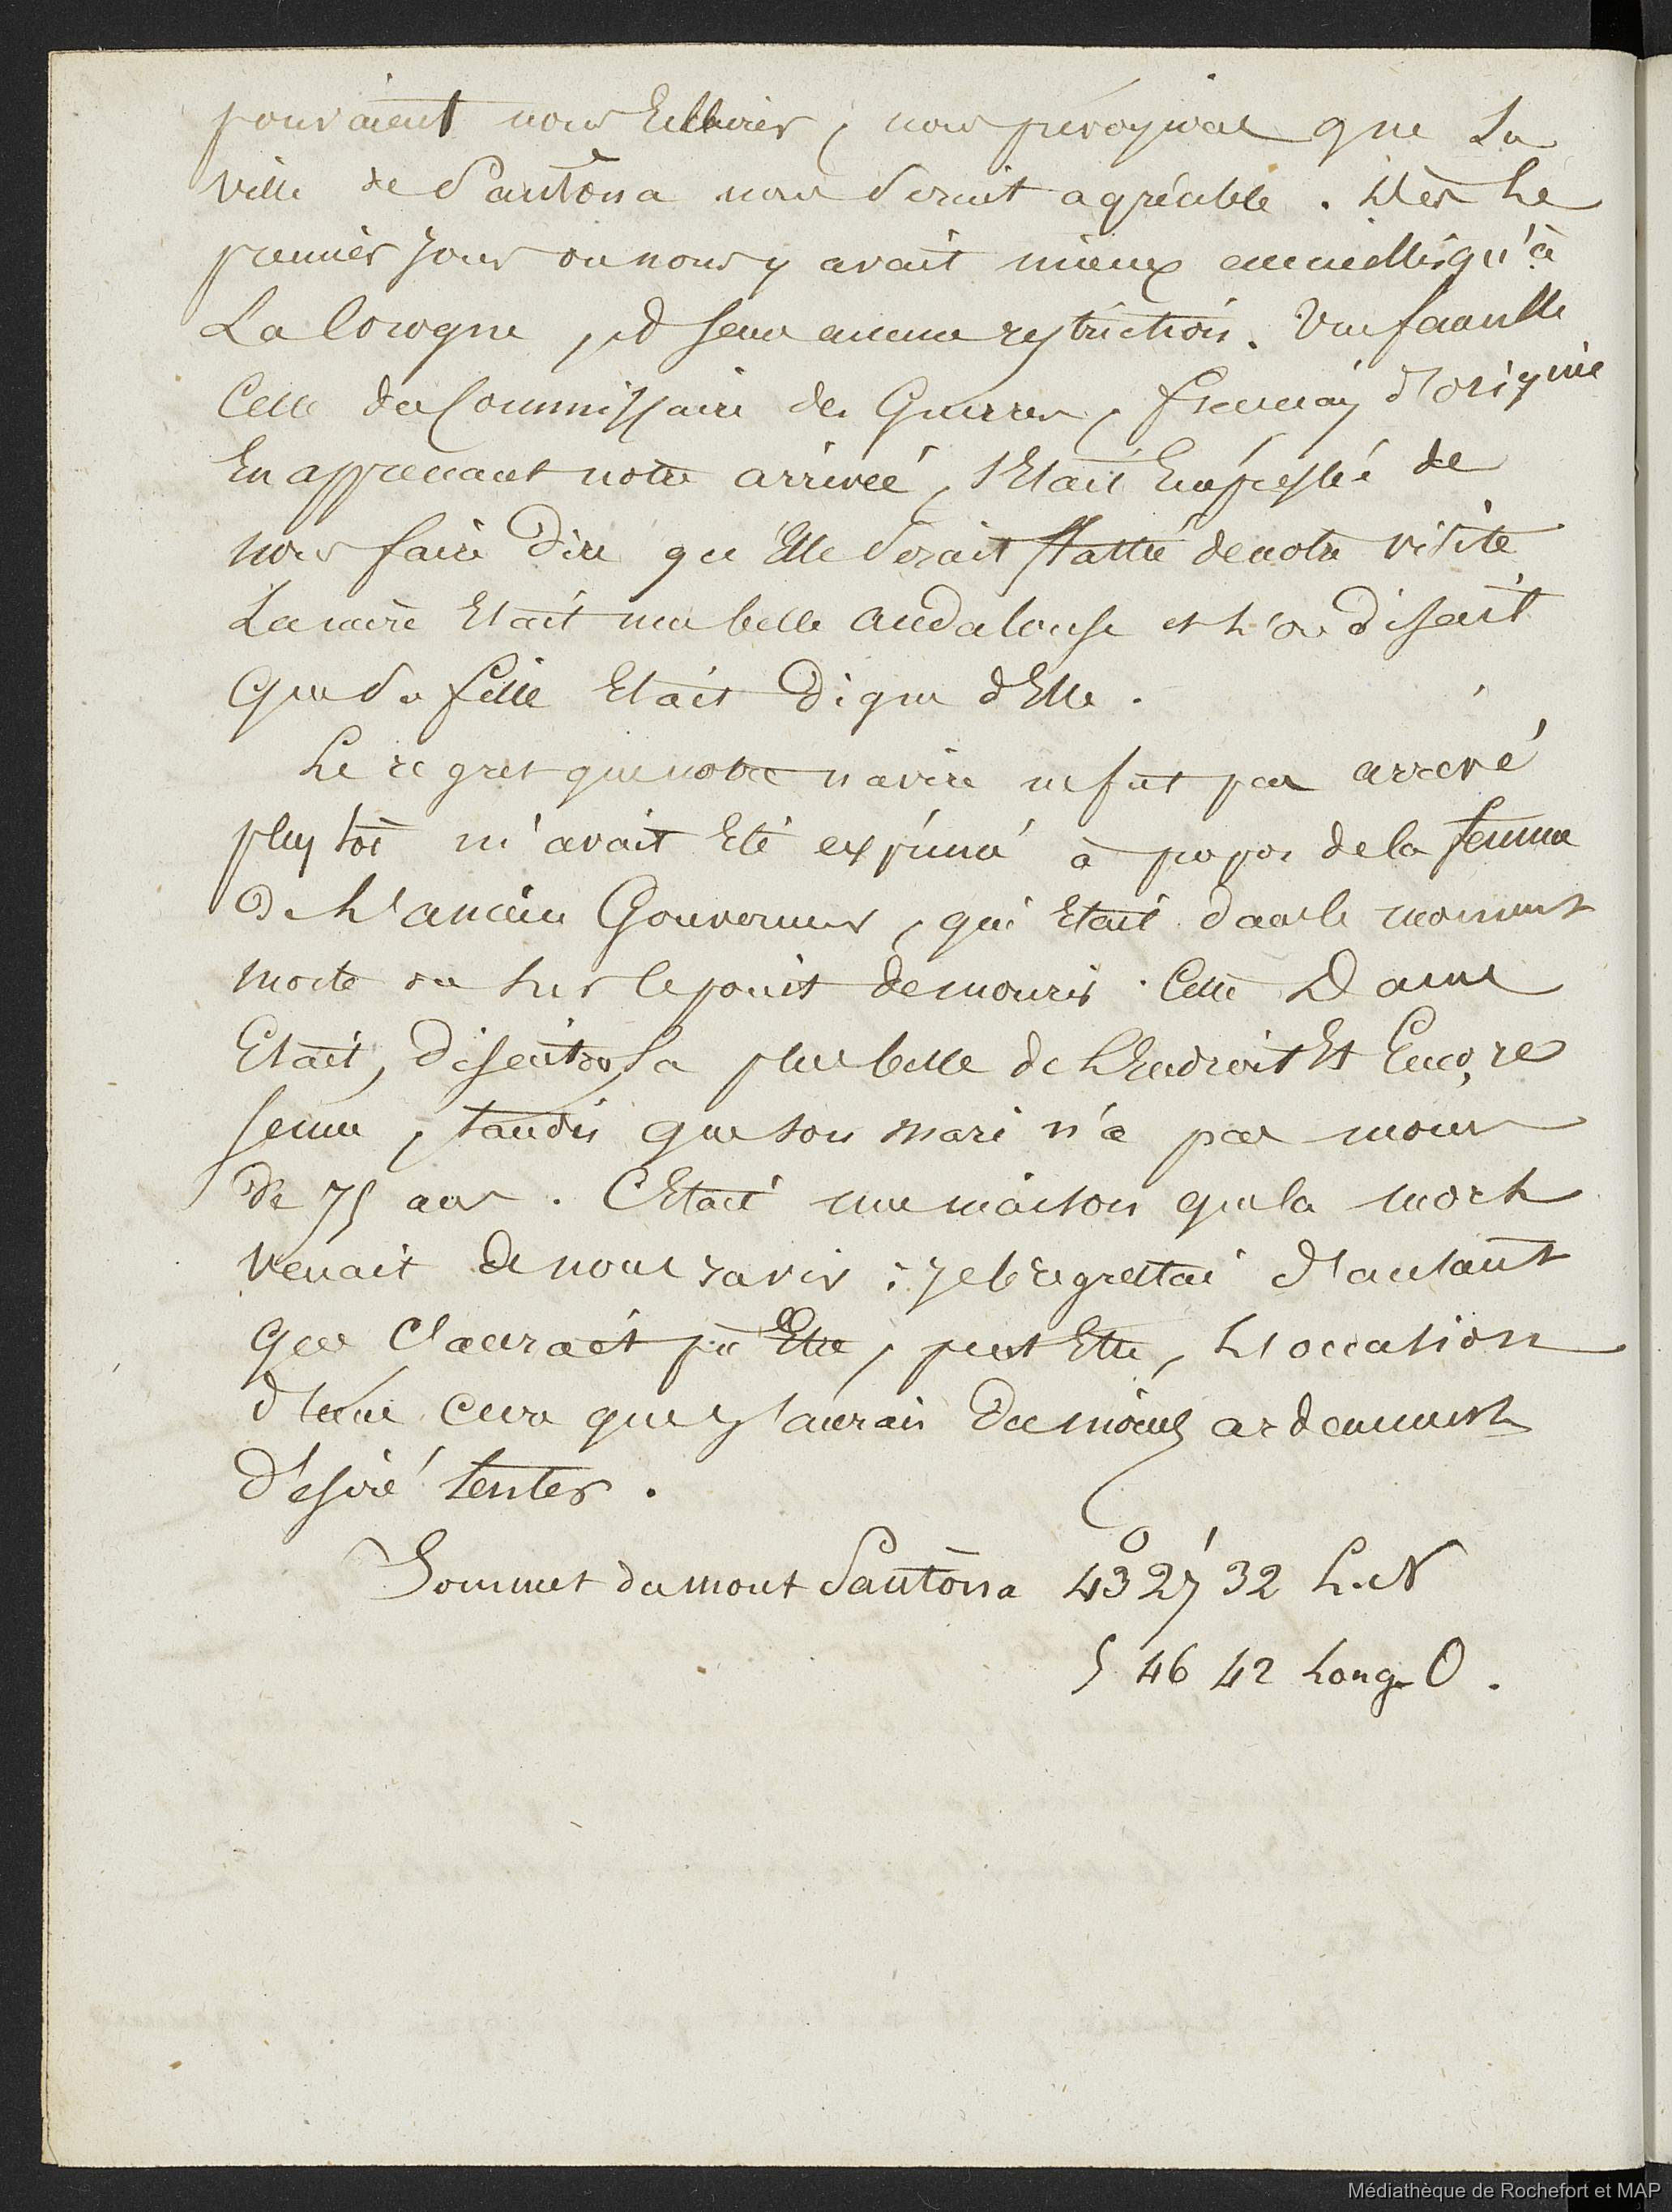 pouvaient nous Eclairer, nous prevoyions que La
Ville de Santôna nous Serait agréable. Dès Le
premier Jour on nous y avait mieux accueillis qu'à
La Corogne, et sans aucune restriction. Une famille
Celle du Commissaire des Guerres, francais d'origine
En apprenant notre arrivée, s'Etait Empressée de
nous faire Dire qu'Elle Serait flattée de notre visite
La mère Etait une belle andalouse et L'on Disait
Que Sa fille Etait Digne d'Elle.
Le regret que notre navire ne fut pas arrivé
plus tôt m'avait Eté exprimé à propos de la femme
De L'ancien Gouverneur, qui Etait dans le moment
morte ou sur le point de mourir. Cette Dame
Etait, Disait-on, la plus belle de L'Endroit Et Encore
jeune, tandis que son mari n'a pas moins
de 75 ans. C'Etait une maison que la mort
Venait de nous ravir; je le regrettai d'autant
que C'aurait pu Etre, peut Etre, L'occasion
d'une cure que j'aurais Du moins ardemment
Désiré tenter.
Sommet du mont Santôna 43° 27' 32 L. N
5 46 42 Long. O.
Médiathèque de Rochefort et MAP